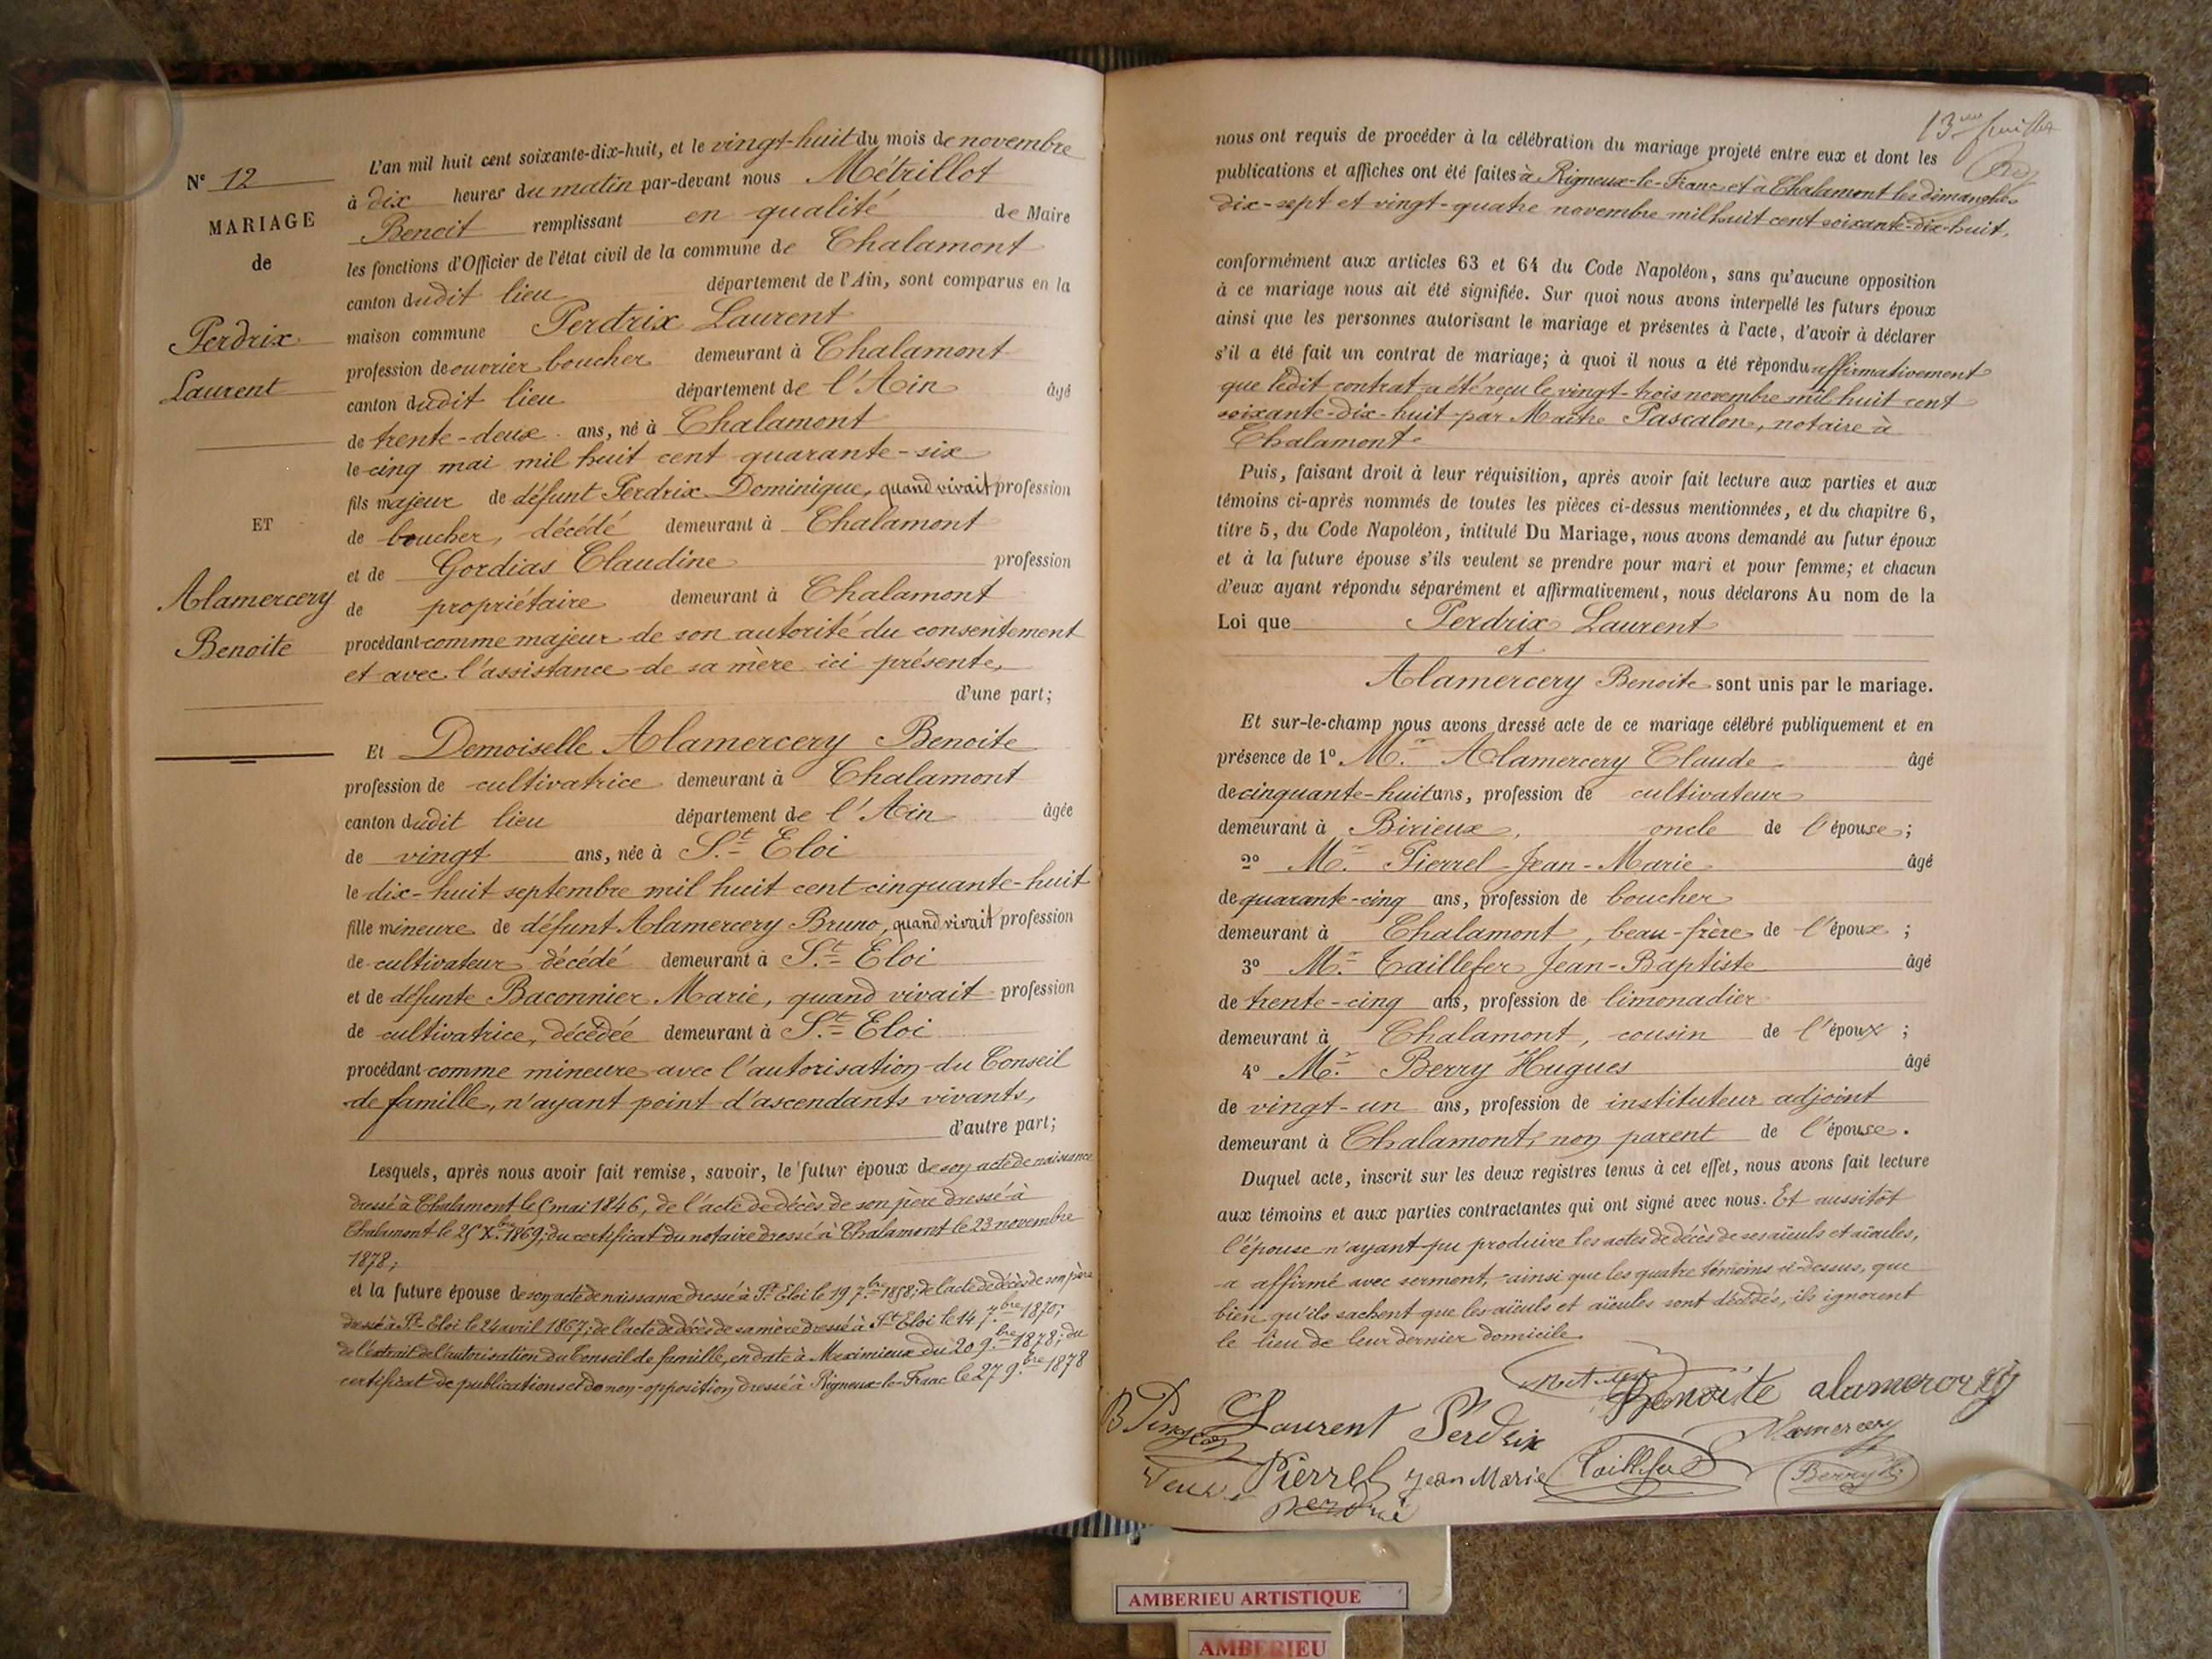 N° 12
MARIAGE
de
Perdrix
Laurent
ET
Alamercery
Benoite
L'an mil huit cent soixante-dix-huit, et le vingt-huit du mois de novembre
à dix heures du matin par-devant nous Métrillot
Benoit remplissant en qualité de Maire
les fonctions d'Officier de l'état civil de la commune de Chalamont
canton dudit lieu département de l'Ain, sont comparus en la
maison commune Perdrix Laurent
profession de ouvrier boucher demeurant à Chalamont
canton dudit lieu département de l'Ain âgé
de trente-deux ans, né à Chalamont
le cinq mai mil huit cent quarante-six
fils majeur de défunt Perdrix Dominique, quand vivait profession
de boucher, décédé demeurant à Chalamont
et de Gordias Claudine profession
de propriétaire demeurant à Chalamont
procédant comme majeur de son autorité du consentement
et avec l'assistance de sa mère ici présente,
d'une part;
Et Demoiselle Alamercery Benoite
profession de cultivatrice demeurant à Chalamont
canton dudit lieu département de l'Ain âgée
de vingt ans, née à St Eloi
le dix-huit septembre mil huit cent cinquante-huit
fille mineure de défunt Alamercery Bruno, quand vivait profession
de cultivateur décédé demeurant à St Eloi
et de défunte Baconnier Marie, quand vivait profession
de cultivatrice, décédée demeurant à St Eloi
procédant comme mineure avec l'autorisation du Conseil
de famille, n'ayant point d'ascendants vivants,
d'autre part;
Lesquels, après nous avoir fait remise, savoir, le futur époux de son acte de naissance
dressé à Chalamont le 6 mai 1846, de l'acte de décès de son père dressé à
Chalamont le 25 Xbre 1869; du certificat du notaire dressé à Chalamont le 23 novembre
1878;
et la future épouse de son acte de naissance dressé à St Eloi le 19 7bre 1858; de l'acte de décès de son père
dressé à St Eloi le 24 avril 1867; de l'acte de décès de sa mère dressé à St Eloi le 14 7bre 1870;
de l'extrait de l'autorisation du Conseil de famille, en date à Meximieux du 20 9bre 1878; du
certificat de publications et de non-opposition dressé à Rigneux-le-Franc le 27 9bre 1878
13me
nous ont requis de procéder à la célébration du mariage projeté entre eux et dont les
publications et affiches ont été faites à Rigneux-le-Franc et à Chalamont les dimanches
dix-sept et vingt-quatre novembre mil huit cent soixante-dix-huit,
conformément aux articles 63 et 64 du Code Napoléon, sans qu'aucune opposition
à ce mariage nous ait été signifiée. Sur quoi nous avons interpellé les futurs époux
ainsi que les personnes autorisant le mariage et présentes à l'acte, d'avoir à déclarer
s'il a été fait un contrat de mariage; à quoi il nous a été répondu affirmativement
que ledit contrat a été reçu le vingt-trois novembre mil huit cent
soixante-dix-huit par Maître Pascalon, notaire à
Chalamont.
Puis, faisant droit à leur réquisition, après avoir fait lecture aux parties et aux
témoins ci-après nommés de toutes les pièces ci-dessus mentionnées, et du chapitre 6,
titre 5, du Code Napoléon, intitulé Du Mariage, nous avons demandé au futur époux
et à la future épouse s'ils veulent se prendre pour mari et pour femme; et chacun
d'eux ayant répondu séparément et affirmativement, nous déclarons Au nom de la
Loi que Perdrix Laurent
et
Alamercery Benoite sont unis par le mariage.
Et sur-le-champ nous avons dressé acte de ce mariage célébré publiquement et en
présence de 1° Mr Alamercery Claude âgé
de cinquante-huit ans, profession de cultivateur
demeurant à Birieux, oncle de l'épouse;
2° Mr Pierrel Jean-Marie âgé
de quarante-cinq ans, profession de boucher
demeurant à Chalamont, beau-frère de l'époux;
3° Mr Taillefer Jean-Baptiste âgé
de trente-cinq ans, profession de limonadier
demeurant à Chalamont, cousin de l'époux;
4° Mr Berry Hugues âgé
de vingt-un ans, profession de instituteur adjoint
demeurant à Chalamont, non parent de l'épouse.
Duquel acte, inscrit sur les deux registres tenus à cet effet, nous avons fait lecture
aux témoins et aux parties contractantes qui ont signé avec nous. Et aussitôt
l'épouse n'ayant pu produire les actes de décès de ses aïeuls et aïeules,
a affirmé avec serment, ainsi que les quatre témoins ci-dessus, que
bien qu'ils sachent que les aïeuls et aïeules sont décédés, ils ignorent
le lieu de leur dernier domicile.
Benoite alamercery
Laurent Perdrix Alamercery
Pierrel Jean Marie Taillefer Berry h
AMBERIEU ARTISTIQUE
AMBERIEU